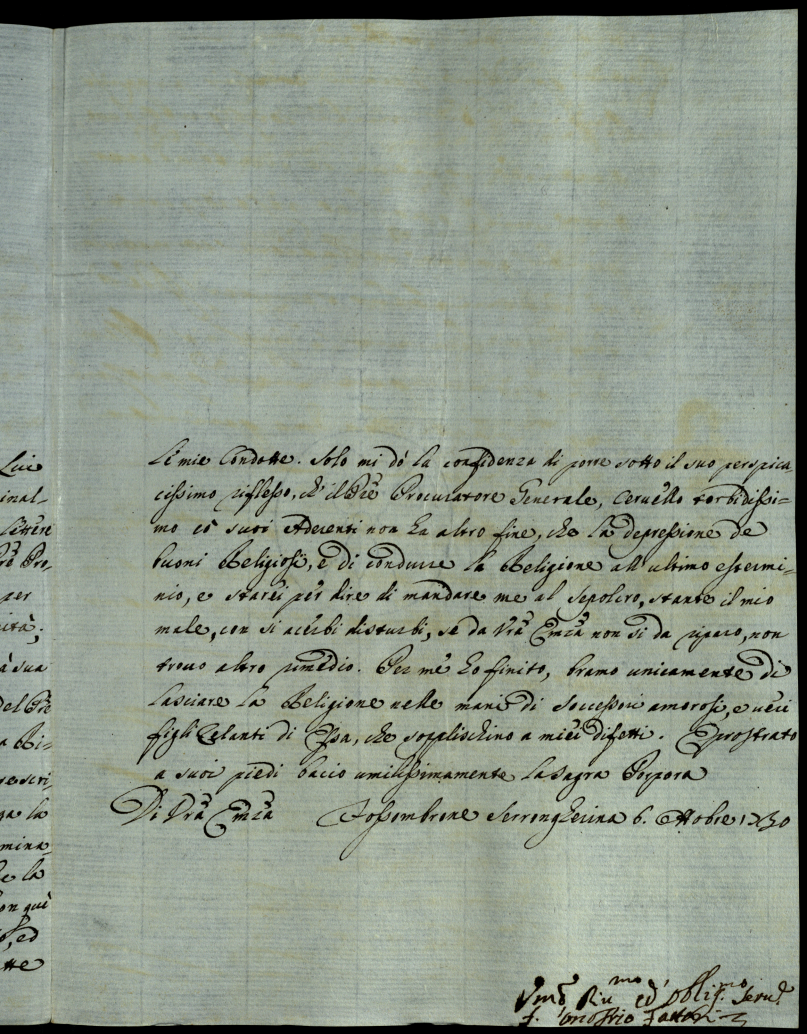 Luie
inal-
Lettere
Prē Pro,
per
cità;
à sua
del Prē
a Ri=
rescri,
ga la
mina,
he la
on què
o, ed
tte
le mie Condotte. Solo mi dò la confidenza di porre sotto il suo perspica,
cissimo riflesso, ch'il Prē Procuratore Generale, Ceruello torbidissi=
mo có suoi Aderenti non ha altro fine, che la depressione de
buoni Religiosi, e di condurre la Religione all'ultimo estermi=
nio, e starei per dire di mandare me al Sepolcro, stante il mio
male, con si acerbi disturbi, se da Vrā Emzā non si da riparo, non
trouo altro rimedio. Per me hò finito, bramo unicamente di
lasciare la Religione nelle mani di Soccessori amorosi, e veri
figli Zelanti di Essa, che sopplischino a miei difetti. E prostrato
a suoi piedi bacio umilissimamente la Sagra Porpora
Di Vrā Emzā Fossombrone Serrongherina 6. Ottobre 1730
Vmō Diu.mo ed obligmo Seru.e
f. Onofrio